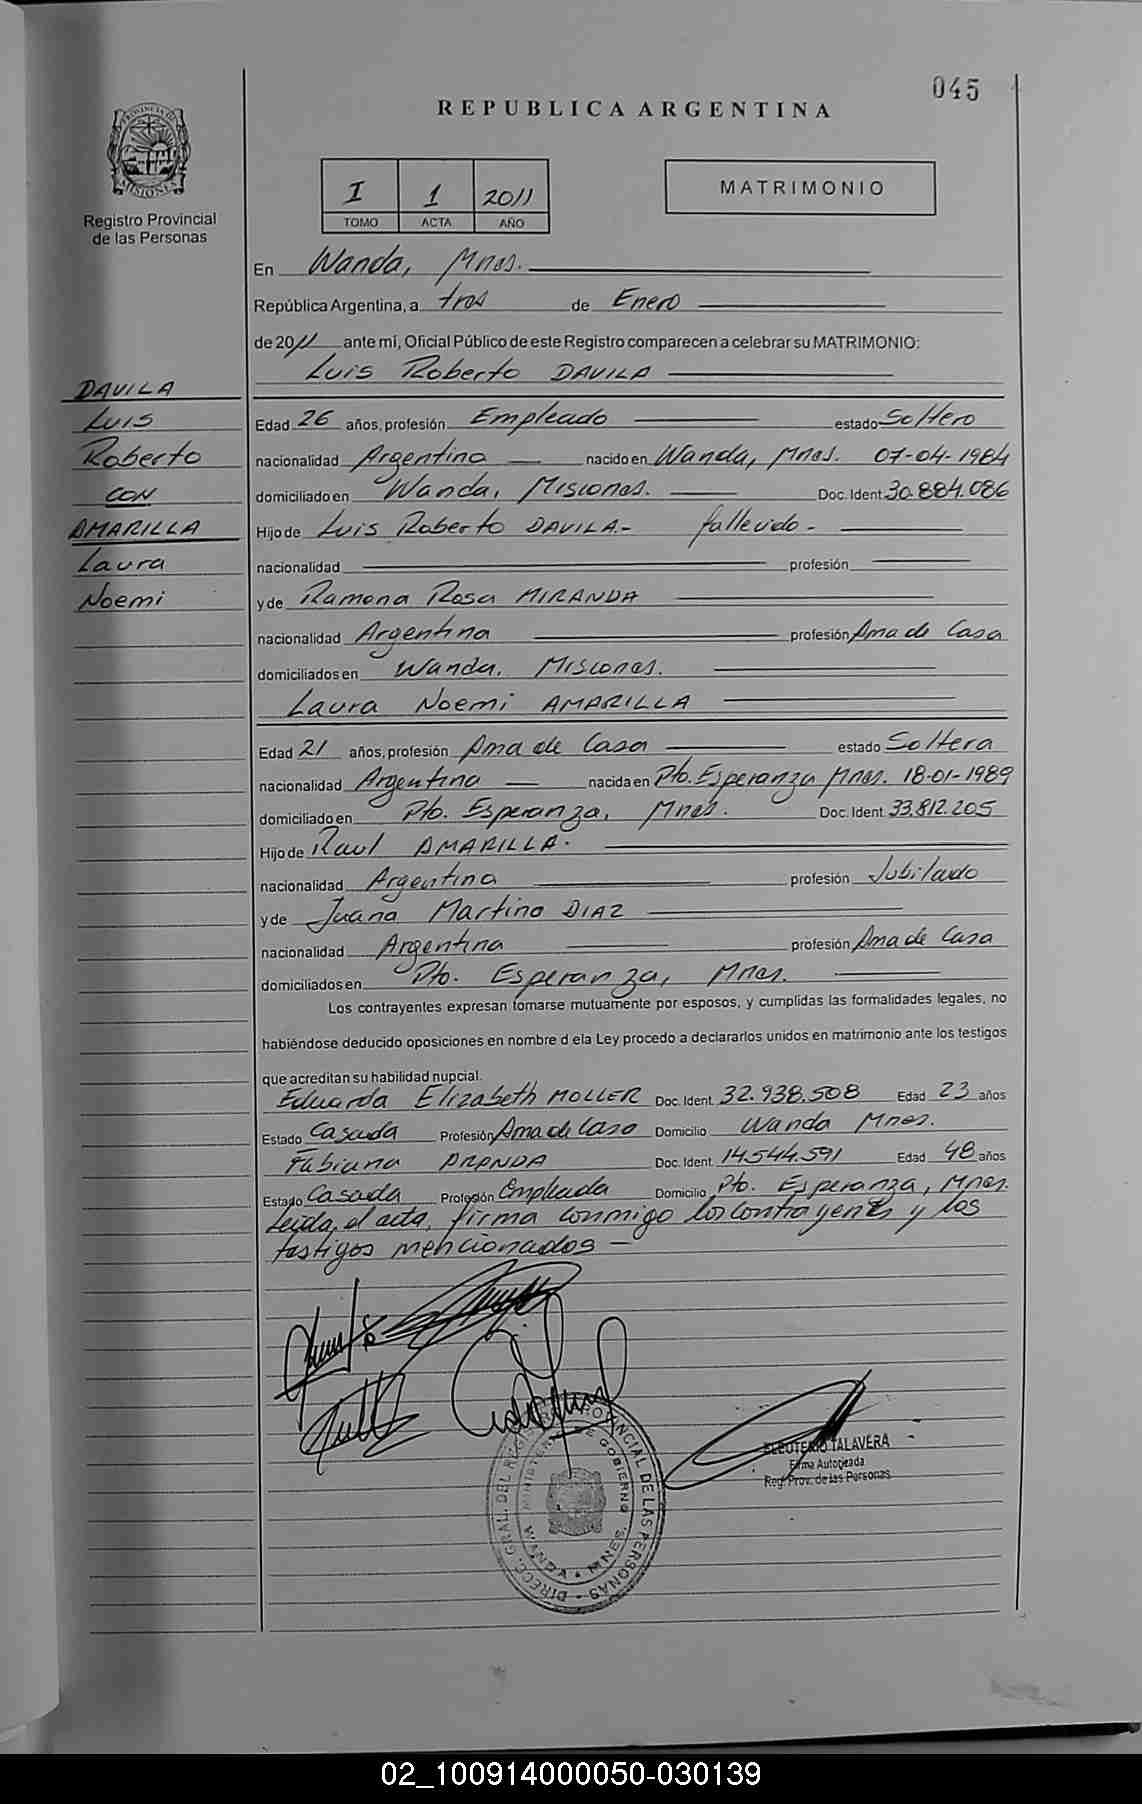 045
REPUBLICA ARGENTINA
PROVINCIA DE MISIONES
Registro Provincial
de las Personas
I 1 2011
TOMO ACTA AÑO
MATRIMONIO
En Wanda, Mnes.
República Argentina, a tres de Enero
de 2011 ante mí, Oficial Público de este Registro comparecen a celebrar su MATRIMONIO:
Luis Roberto DAVILA
DAVILA
Luis
Roberto
CON
AMARILLA
Laura
Noemi
Edad 26 años, profesión Empleado estado Soltero
nacionalidad Argentina nacido en Wanda, Mnes. 07-04-1984
domiciliado en Wanda, Misiones. Doc. Ident 30.884.086
Hijo de Luis Roberto DAVILA.- fallecido.-
nacionalidad profesión
y de Ramona Rosa MIRANDA
nacionalidad Argentina profesión Ama de Casa
domiciliados en Wanda, Misiones.
Laura Noemi AMARILLA
Edad 21 años, profesión Ama de Casa estado Soltera
nacionalidad Argentina nacida en Pto. Esperanza Mnes. 18-01-1989
domiciliado en Pto. Esperanza, Mnes. Doc. Ident 33.812.205
Hijo de Raul AMARILLA.
nacionalidad Argentina profesión Jubilado
y de Juana Martina DIAZ
nacionalidad Argentina profesión Ama de Casa
domiciliados en Pto. Esperanza, Mnes.
Los contrayentes expresan tomarse mutuamente por esposos, y cumplidas las formalidades legales, no
habiéndose deducido oposiciones en nombre d ela Ley procedo a declararlos unidos en matrimonio ante los testigos
que acreditan su habilidad nupcial.
Eduarda Elizabeth MOLLER Doc. Ident. 32.938.508 Edad 23 años
Estado Casada Profesión Ama de Casa Domicilio Wanda Mnes.
Fabiana ARANDA Doc. Ident. 14.544.591 Edad 48 años
Estado Casada Profesión Empleada Domicilio Pto. Esperanza, Mnes.
Leida el acta, firma conmigo los contrayentes y los
testigos mencionados
DIRECC. GRAL. DEL REGISTRO PROVINCIAL DE LAS PERSONAS
MINISTERIO DE GOBIERNO
WANDA MNES.
ELEUTERIO TALAVERA
Firma Autorizada
Reg. Prov. de las Personas
02_100914000050-030139